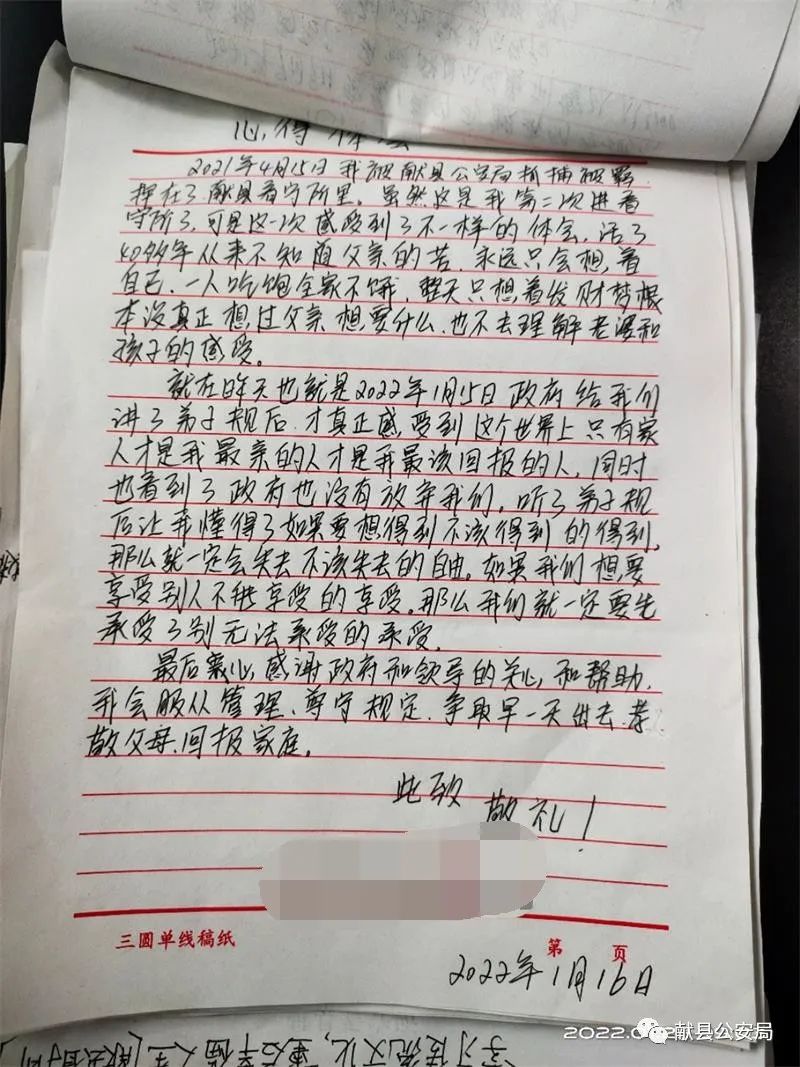 心得体会
2021年4月15日我被献县公安局抓捕被羁
押在了献县看守所里。虽然这是我第二次进看
守所了,可是这一次感受到了不一样的体会,活了
40多年从来不知道父亲的苦,永远只会想着
自己,一人吃饱全家不饿,整天只想着发财梦根
本没真正想过父亲想要什么,也不去理解老婆和
孩子的感受。
就在昨天也就是2022年1月15日政府给我们
讲了弟子规后,才真正感受到这个世界上只有家
人才是我最亲的人才是我最该回报的人,同时
也看到了政府也没有放弃我们,听了弟子规
后让我懂得了如果要想得到不该得到的得到,
那么就一定会失去不该失去的自由。如果我们想要
享受别人不能享受的享受,那么我们就一定要先
承受了别无法承受的承受。
最后衷心感谢政府和领导的关心和帮助,
我会服从管理、尊守规定,争取早一天出去,孝
敬父母,回报家庭。
此致
敬礼!
三圆单线稿纸
第 页
2022年1月16日
献县公安局